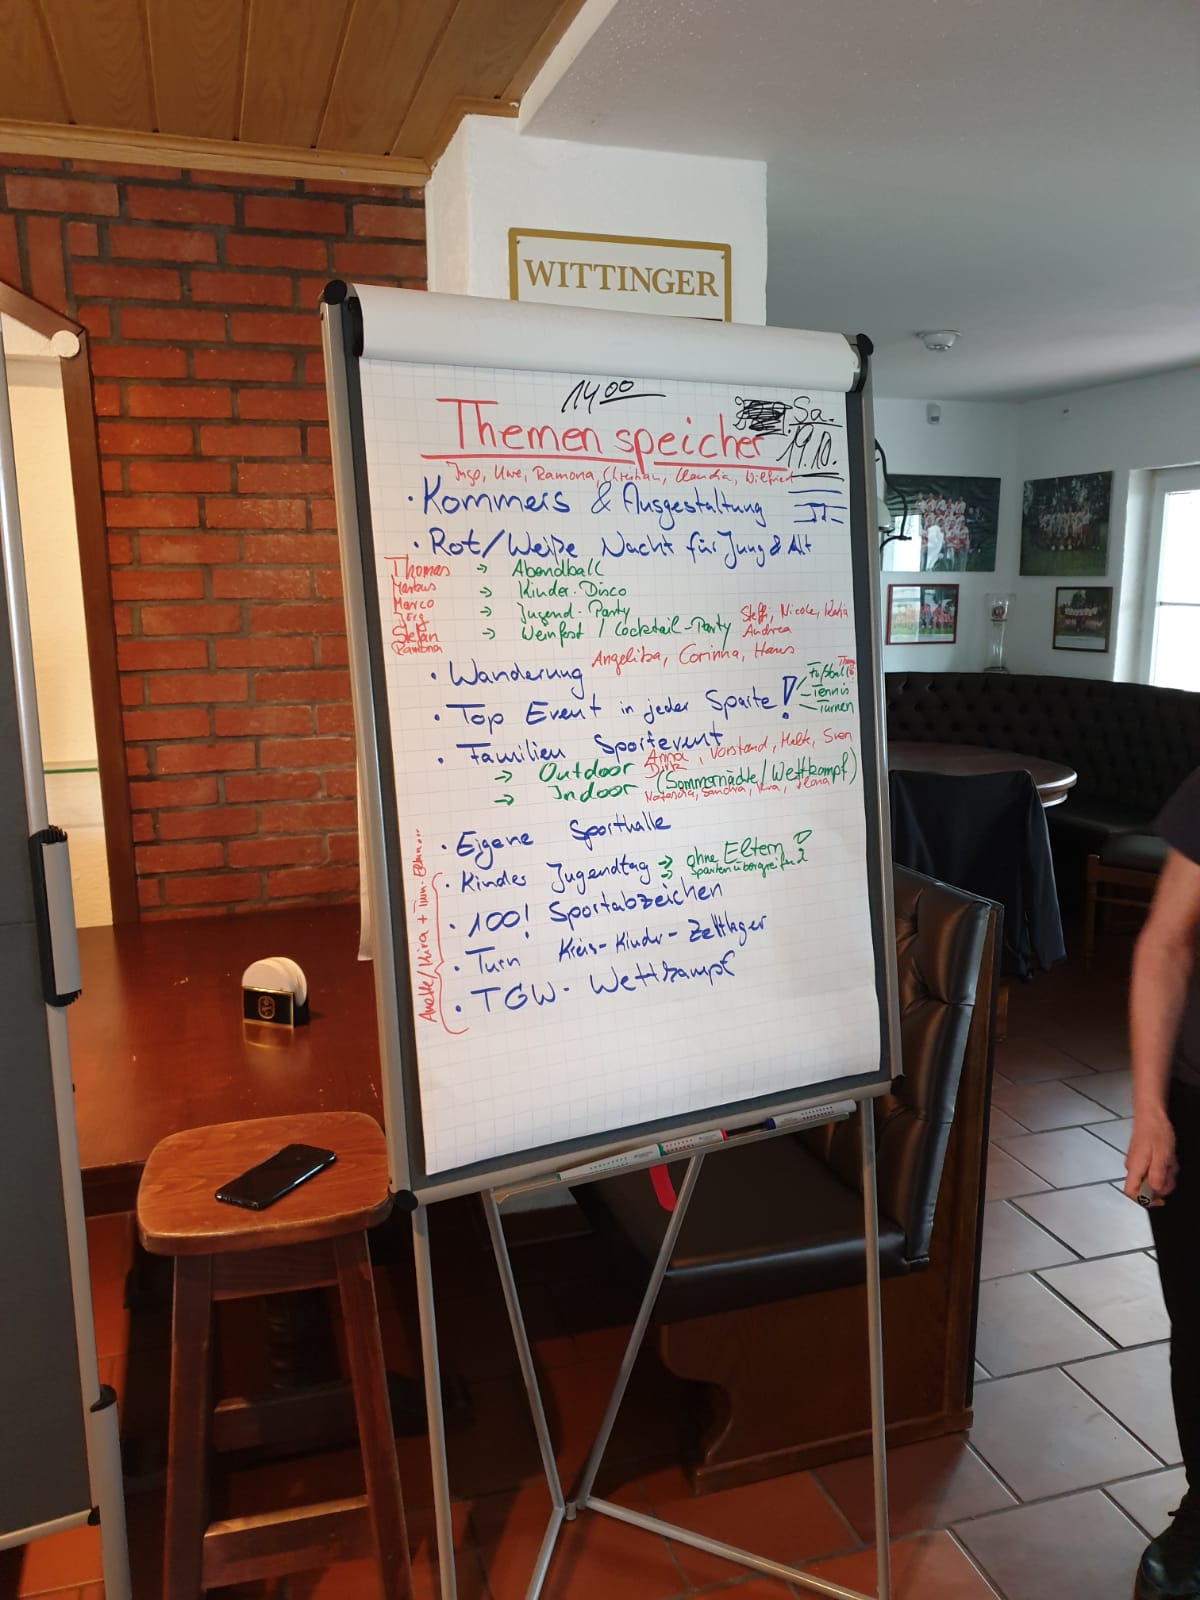 WITTINGER
14 00
Sa.
19.10.
Themenspeicher
Ingo, Uwe, Ramona, Christian, Claudia, Wilfried
· Kommers & Ausgestaltung
· Rot/Weiße Nacht für Jung & Alt
Thomas
Markus
Marco
Jörg
Stefan
Ramona
→ Abendball
→ Kinder-Disco
→ Jugend-Party
→ Weinfest / Cocktail-Party
Steffi, Nicole, Katja
Andrea
· Wanderung
Angelika, Corinna, Hans
· Top Event in jeder Sparte!
Fußball
Tennis
Turnen
· Familien Sportevent
→ Outdoor
Anna, Vorstand, Sven
Dirk
→ Indoor (Sommernächte/Wettkampf)
Natascha, Sandra, Kira, Ilona
· Eigene Sporthalle
· Kinder Jugendtag → ohne Eltern
→ Spartenübergreifend
· 100! Sportabzeichen
· Turn Kreis-Kinder-Zeltlager
· TGW-Wettkampf
Anette/Kira + Turn-